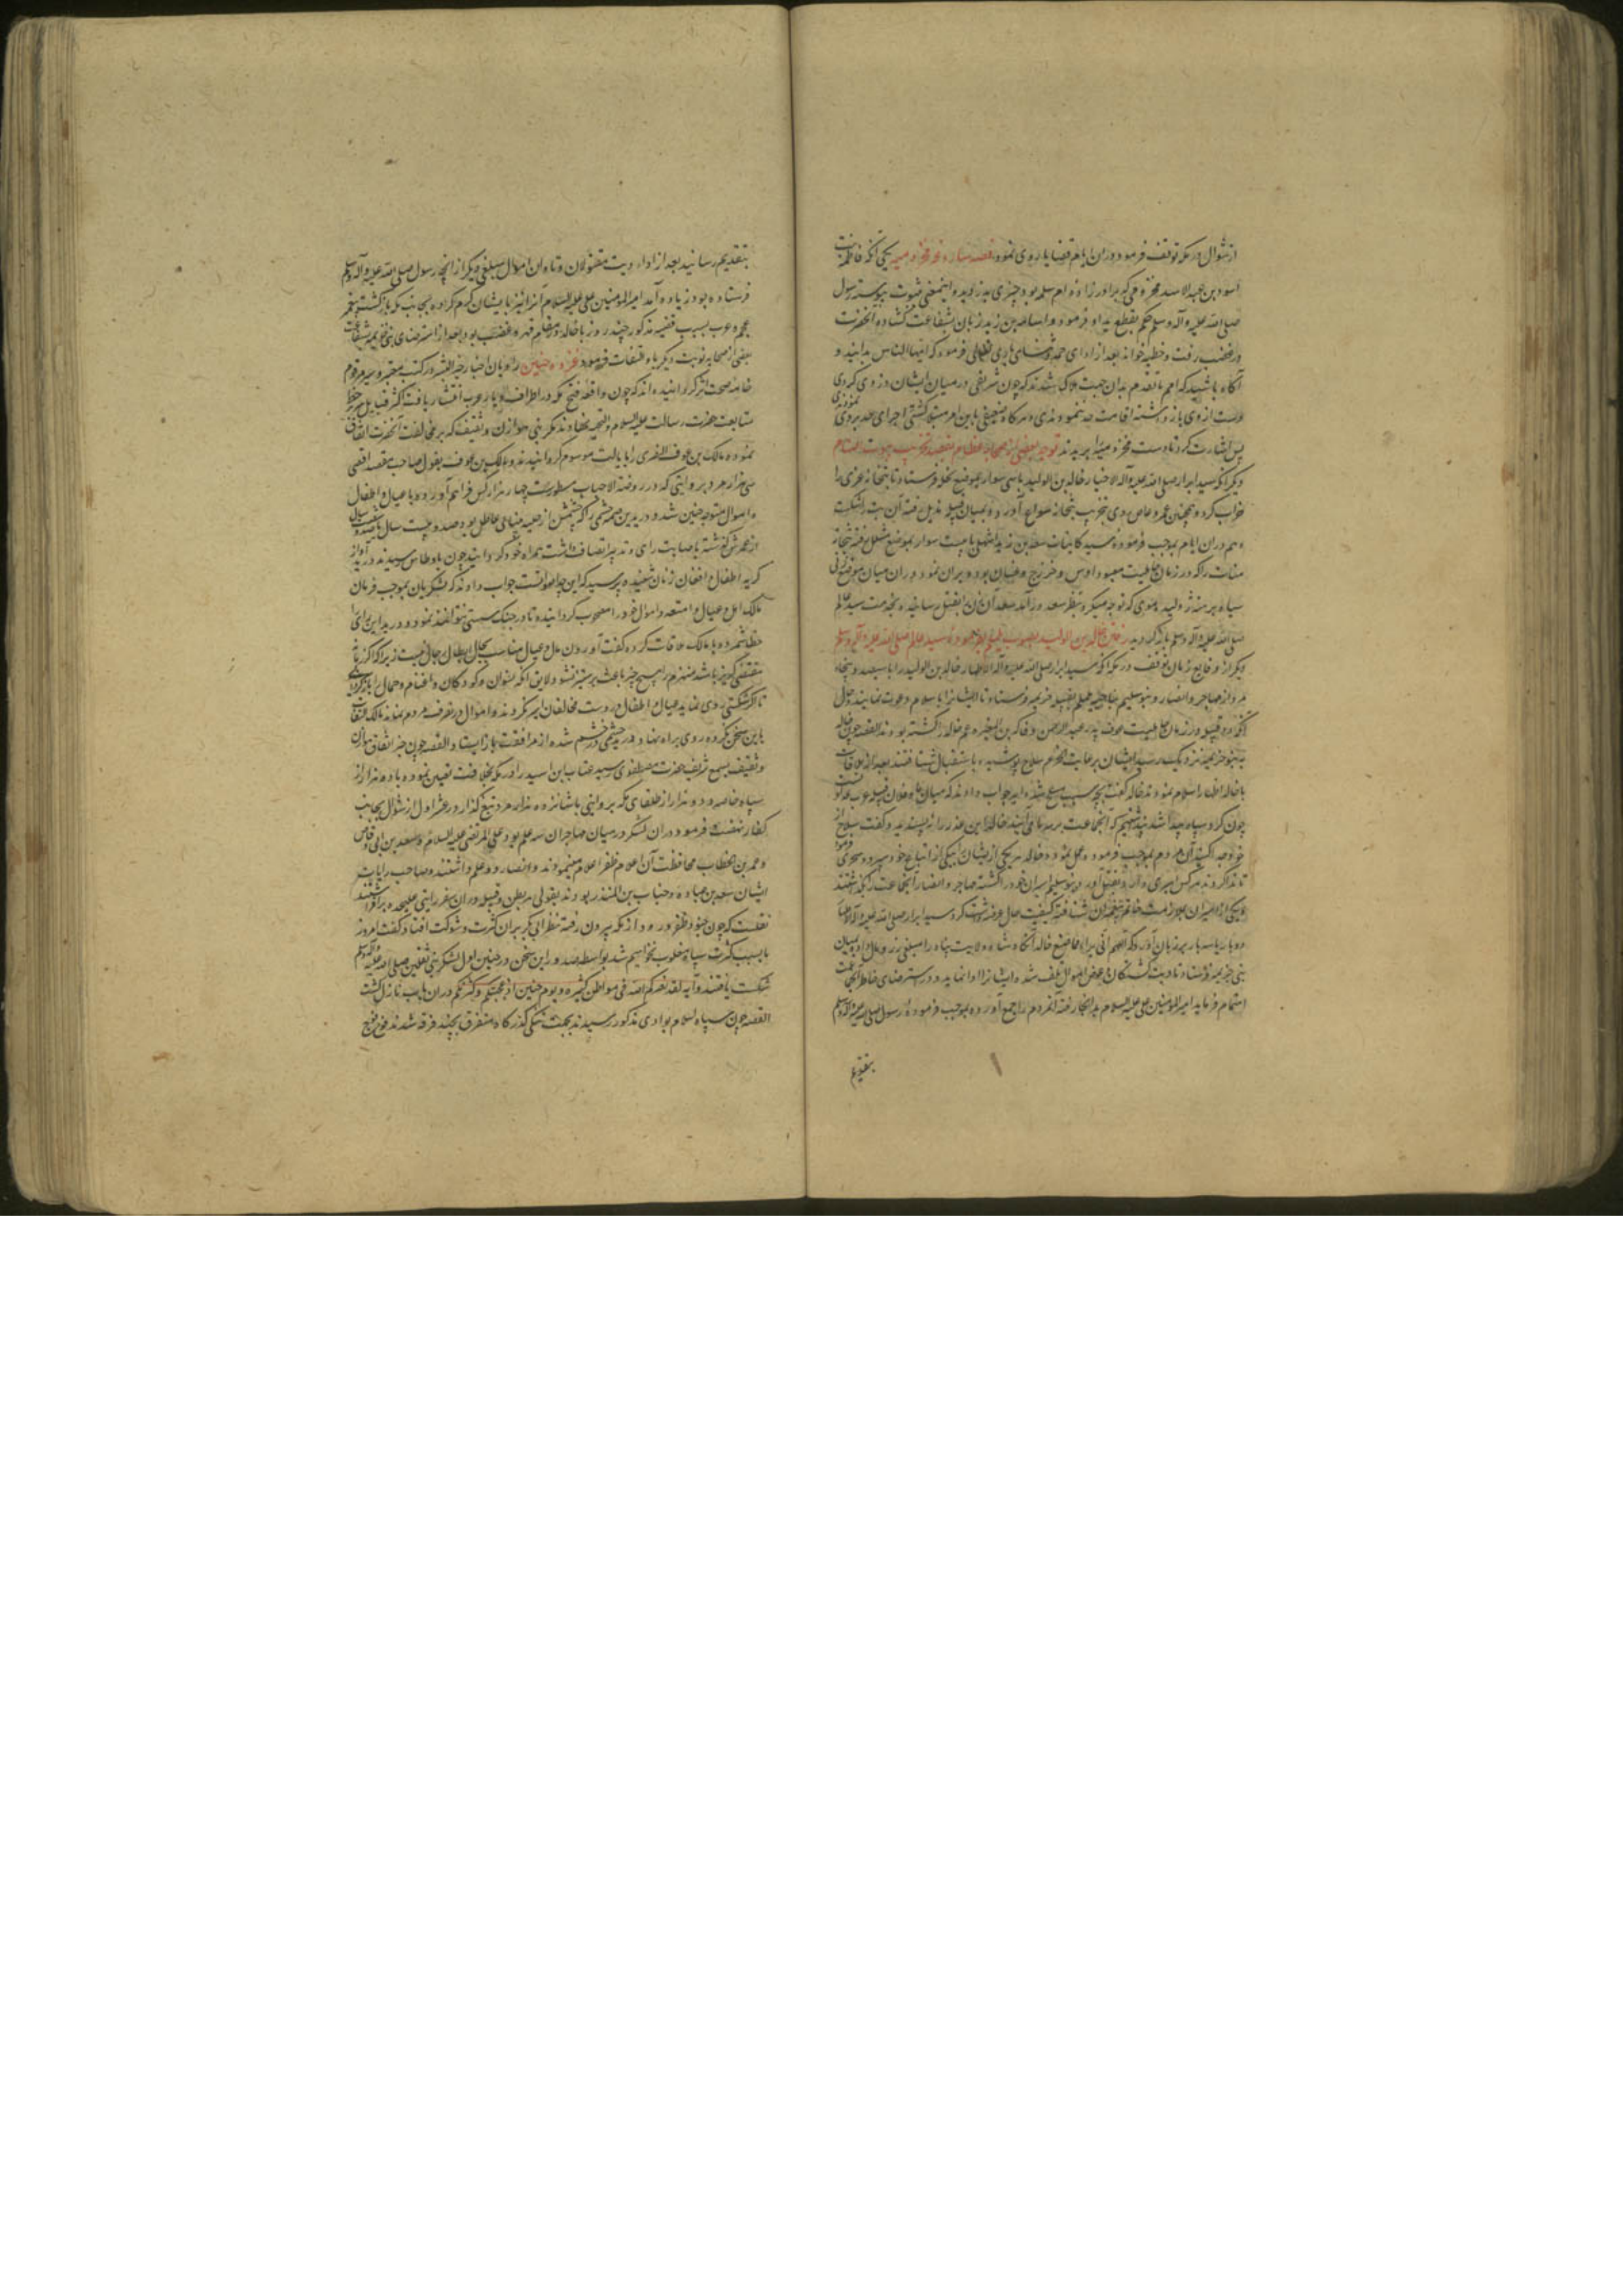 از شوال در مکه توقف فرمود و در ان ایام قضایا روی نمود قصه سارقه مخزومیه یکی آنکه فاطمه بنت
اسود بن عبد الاسد مخزومی که برادرزاده ام سلمه بود چیزی بدزدید و اینمعنی ثبوت پیوسته رسول
صلی الله علیه و آله وسلم حکم بقطع ید او فرمود و اسامه بن زید زبان بشفاعت گشاده آنحضرت
در غضب رفت و خطبه خواند بعد از ادای حمد و ثنای باری تعالی فرمود که ایها الناس بدانید و
آگاه باشید که امم ما تقدم بدان جهت هلاک شدند که چون شریفی در میان ایشان دزدی کردی
دست از وی باز داشته اقامت حد ننمودندی و هرگاه ضعیفی باین امر مرتکب گشتی اجرای حد بر وی نمودندی
پس اشارت کرد تا دست مخزومیه را بریدند توجه بعضی از صحابه عظام بقصد تخریب بیوت اصنام
دیگر آنکه سید ابرار صلی الله علیه و آله الاخیار خالد بن الولید با سی سوار بموضع نخله فرستاد تا بتخانه عزی را
خراب کرد و همچنان عمرو عاص روی بتخریب بتخانه سواع آورد و بمیان قبیله هذیل رفته آن بت را شکست
و هم دران ایام بموجب فرموده سید کاینات سعد بن زید اشهلی با بیست سوار بموضع مشلل رفته بتخانه
منات را که در زمان جاهلیت معبود اوس و خزرج و غسان بود ویران نمود و در ان میان موضع زنی
سیاه برهنه ژولیده موی که نوحه میکرد بنظر سعد درآمد سعد آن زن را بقتل رسانیده بخدمت سید عالم
صلی الله علیه و آله وسلم باز گردید رفتن خالد بن الولید بصوب یلملم بفرموده سید عالم صلی الله علیه و آله وسلم
دیگر از وقایع زمان توقف در مکه آنکه سید ابرار صلی الله علیه و آله الاطهار خالد بن الولید را با سیصد و پنجاه
مرد از مهاجر و انصار و بنو سلیم بناحیه یلملم بقبیله خزیمه فرستاد تا ایشانرا باسلام دعوت نماید و حال
آنکه آن قبیله در زمان جاهلیت عوف پدر عبد الرحمن و فاکه بن المغیره عم خالد را کشته بودند القصه چون خالد
به بنو خزیمه نزدیک رسید ایشان برعایت حزم سلاح پوشیده باستقبال شتافتند و بعد از ملاقات
با خالد اظهار اسلام نمودند خالد گفت بچه سبب مسلح شده اید جواب دادند که میان ما و فلان قبیله عرب عداوتست
چون گرد سپاه پیدا شد پنداشتیم که آنجماعت بر سر ما می آیند خالد این عذر را نپسندید و گفت سلاح از
خود جدا کنید آن مردم بموجب فرموده عمل نمودند و خالد هر یکی از ایشان را بیکی از اتباع خود سپرد و سحری فرمود
تا ندا کردند هر کس اسیری دارد بقتل آورد بنو سلیم اسیران خود را کشته مهاجر و انصار آنجماعت را نگذاشتند
و یکی از اسیران بملازمت خاتم پیغمبران شتافته کیفیت حال عرضه داشت کرد سید ابرار صلی الله علیه و آله الاطهار
دو بار یا سه بار بر زبان آورد که اللهم انی ابرا مما صنع خالد آنگاه شاه ولایت پناه را مبلغی زر و مال داد و بمیان
بنی خزیمه فرستاد تا دیت کشتگان و عوض اموال تلف شده ایشانرا ادا نماید و در استرضای خاطر آنجماعت
اهتمام فرماید امیر المؤمنین علی علیه السلام بدانجا رفته آنمردم را جمع آورده بموجب فرموده رسول صلی الله علیه و آله وسلم
بتقدیم
بتقدیم رسانید بعد از اداء دیت مقتولان و تاوان اموال مبلغی دیگر از آنچه رسول صلی الله علیه و آله وسلم
فرستاده بود زیاده آمد امیر المؤمنین علی علیه السلام آنرا نیز بایشان کرم کرده بجانب مکه بازگشت و پیغمبر
عجم و عرب بسبب قضیه مذکور چند روز با خالد در مقام قهر و غضب بود بعد از استرضای بنی خزیمه بشفاعت
بعضی از صحابه نوبت دیگر با او التفات فرمود غزوه حنین راویان اخبار خیر البشر در کتب معتبره سیر مرقوم
خامه صحت اثر گردانیده اند که چون واقعه فتح مکه در اطراف دیار عرب انتشار یافت اکثر قبایل سر بر خط
متابعت حضرت رسالت علیه السلام و التحیه نهادند مگر بنی هوازن و ثقیف که بر مخالفت آنحضرت اتفاق
نموده مالک بن عوف النصری را بایالت موسوم گردانیدند و مالک بن عوف بقول صاحب مقصد اقصی
سی هزار مرد و بروایتی که در روضة الاحباب مسطورست چهار هزار کس فراهم آورد و با عیال و اطفال
و اموال متوجه حنین شد و درید بن صمه جشمی را که چشمش از حلیه بینایی عاطل بود و صد و بیست سال یا صد و شصت سال
از عمرش گذشته باصابت رای و تدبیر اتصاف داشت همراه خود گردانید و چون باوطاس رسیدند درید آواز
گریه اطفال و افغان زنان شنیده پرسید که این چه اصواتست جواب دادند که لشکریان بموجب فرمان
مالک اهل و عیال و امتعه و اموال خود را مصحوب گردانیده تا در جنگ سستی نتوانند نمود و درید این رای را
خطا شمرده با مالک ملاقات کرده گفت آوردن اهل و عیال مناسب بحال ابطال رجال نیست زیرا که اگر زمانه
مقتضی گریز باشد منهزم را هیچ چیز باعث بر ستیز نشود لایق آنکه نسوان و کودکان و اغنام و جمال را بازگردانی
تا اگر شکستی روی نماید عیال و اطفال در دست مخالفان اسیر نگردند و اموال در تصرف مردم بماند مالک التفات
باین سخن نکرده روی براه نهاد و درید جشمی در خشم شده از مرافقت باز ایستاد القصه چون خبر اتفاق هوازن
و ثقیف بسمع شریف حضرت مصطفوی رسید عتاب ابن اسید را در مکه بخلافت تعیین نموده با ده هزار از
سپاه خاصه و دو هزار از طلقای مکه و بروایتی با شانزده هزار مرد تیغ گذار در عشر اول از شوال بجانب
کفار نهضت فرمود و در ان لشکر در میان مهاجران سه علم بود علی المرتضی علیه السلام و سعد بن ابی وقاص
و عمر بن الخطاب محافظت آن اعلام ظفر اعلام مینمودند و انصار دو علم داشتند و صاحب رایات
ایشان سعد بن عباده و حباب بن المنذر بودند و بقولی هر بطن و قبیله در ان سفر رایتی علیحده برافراشتند
نقلست که چون جنود ظفر ورود از مکه بیرون رفته نظر ابی بکر بران کثرت و شوکت افتاد گفت امروز
ما بسبب کثرت سپاه مغلوب نخواهیم شد بواسطه صدور این سخن در حنین اول لشکر نبی ثقلین صلی الله علیه و آله وسلم
شکست یافتند و آیه لقد نصرکم الله فی مواطن کثیره و یوم حنین اذ اعجبتکم کثرتکم دران باب نازل گشت
القصه چون سپاه اسلام بوادی مذکور رسیدند بجهت تنگی گذرگاه متفرق بچند فرقه شدند فوج فوج